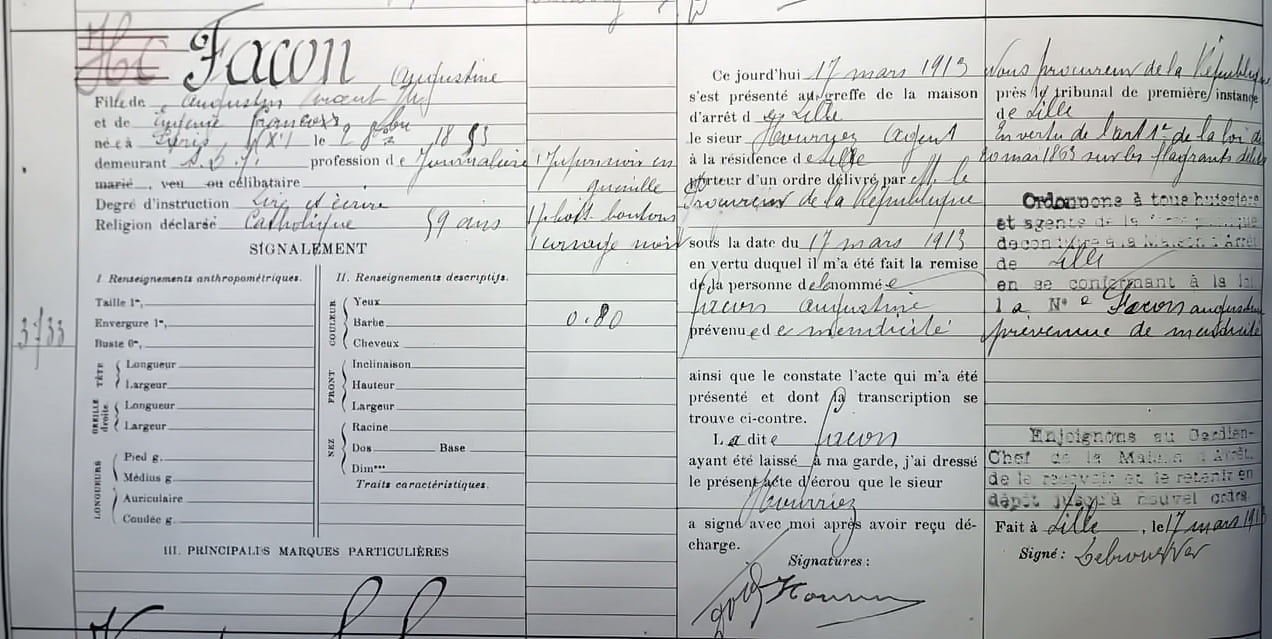 3733
HC Facon Augustine
Fille de Augustin
et de françois
né e à Paris (X) le 2 18 53
demeurant S. D. F. profession d e Journalière
marié , veu ou célibataire
Degré d'instruction lire et écrire
Religion déclarée Catholique 59 ans
SIGNALEMENT
I Renseignements anthropométriques.
Taille 1m,
Envergure 1m,
Buste 0m,
TÊTE
Longueur
Largeur
OREILLE droite
Longueur
Largeur
LONGUEURS
Pied g.
Médius g
Auriculaire
Coudée g
II. Renseignements descriptifs.
COULEUR
Yeux
Barbe
Cheveux
FRONT
Inclinaison
Hauteur
Largeur
NEZ
Racine
Dos Base
Dimon
Traits caractéristiques.
III. PRINCIPALES MARQUES PARTICULIÈRES
1 en
guenille
1 boutons
1 noir
0.80
Ce jourd'hui 17 mars 1913
s'est présenté au greffe de la maison
d'arrêt d e Lille
le sieur Hourriez agent
à la résidence d e Lille
porteur d'un ordre délivré par le
Procureur de la République
sous la date du 17 mars 1913
en vertu duquel il m'a été fait la remise
de la personne de l nommé e
Facon Augustine
prévenu e d e mendicité
ainsi que le constate l'acte qui m'a été
présenté et dont la transcription se
trouve ci-contre.
La dite Facon
ayant été laissé à ma garde, j'ai dressé
le présent acte d'écrou que le sieur
Hourriez
a signé avec moi après avoir reçu dé-
charge.
Signatures :
Nous procureur de la République
près le tribunal de première instance
de Lille
En vertu de l'art 1er de la loi du
20 mai 1863 sur les flagrants délits
Ordonnons à tous huissiers
et agents de la force publique
de conduire à la Maison d'Arrêt
de Lille
en se conformant à la loi
la Née Facon augustine
prévenue de mendicité
Enjoignons au Gardien-
Chef de la Maison d'Arrêt
de la recevoir et le retenir en
dépôt jusqu'à nouvel ordre
Fait à Lille , le 17 mars 1913
Signé :